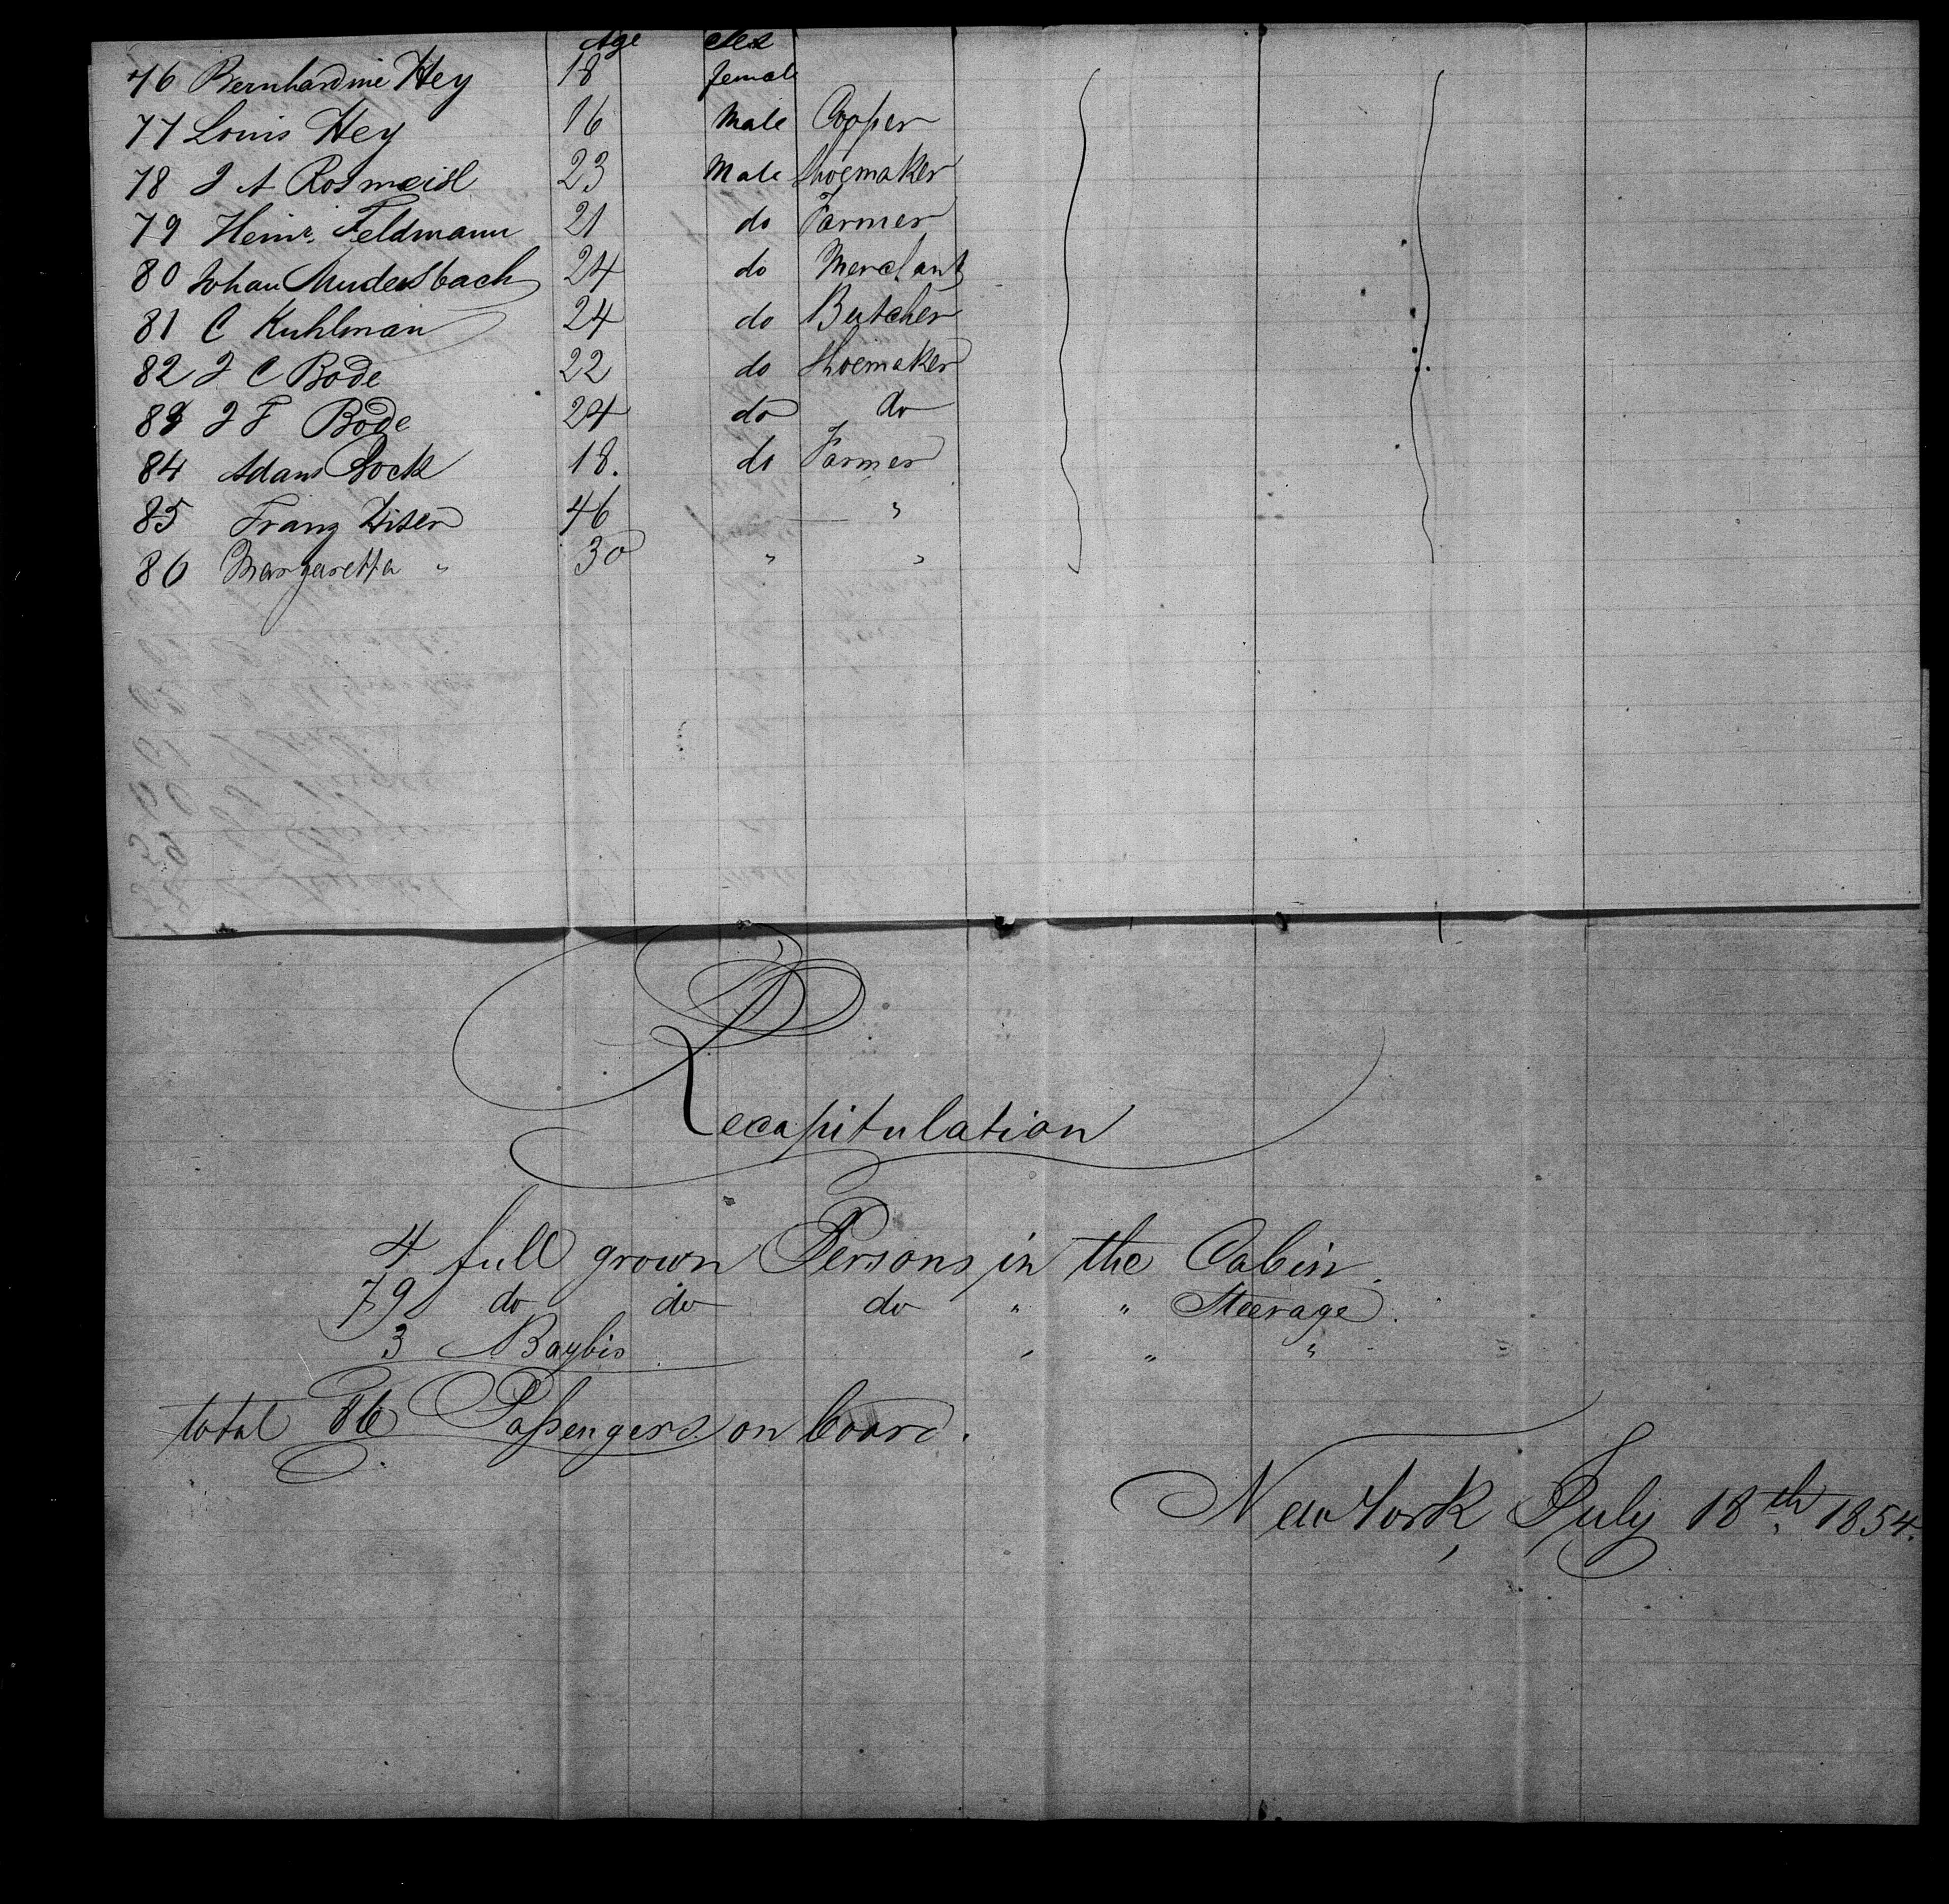 Age Sex
76 Bernhardine Hey 18 female
77 Louis Hey 16 Male Cooper
78 J A Rosmeisl 23 Male Shoemaker
79 Heinr. Feldmann 21 do Farmer
80 Johan Mudersbach 24 do Merchant
81 C Kuhlman 24 do Butcher
82 J C Bode 22 do Shoemaker
83 J F Bode 24 do do
84 Adam 18. do Farmer
85 Franz 46 "
86 Margaretta " 30 " "
Recapitulation
4 full grown Persons in the Cabin.
79 do do do " " Steerage.
3 Baybis " " "
total 86 Passengers on board.
New York, July 18th 1854.